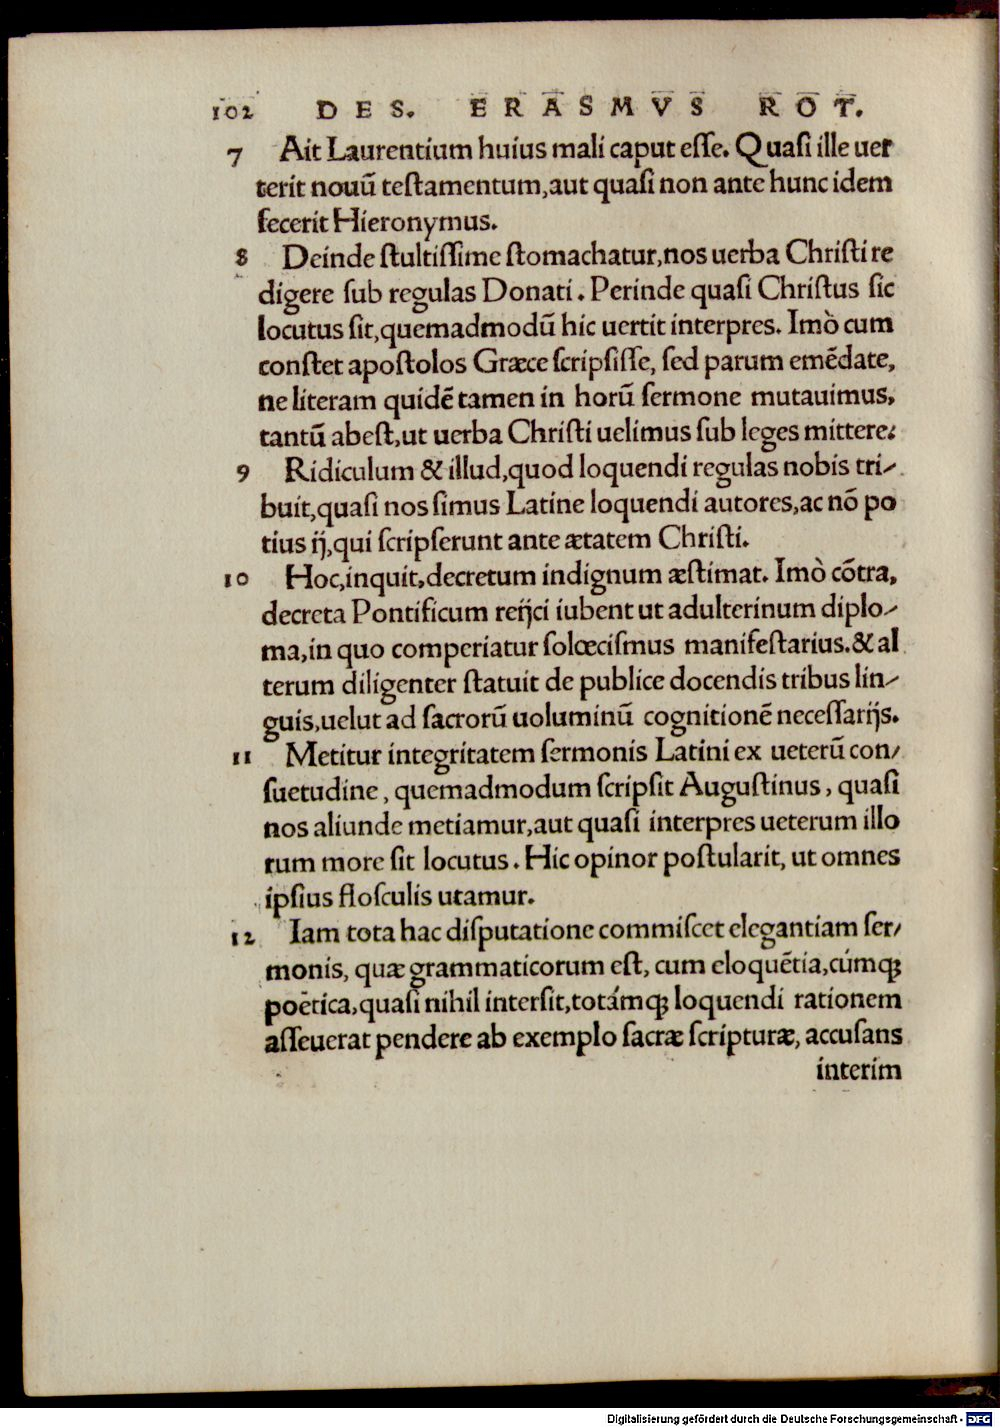 102 DES. ERASMVS ROT.
7 Ait Laurentium huius mali caput eſſe. Quaſi ille uer
terit nouũ teſtamentum,aut quaſi non ante hunc idem
fecerit Hieronymus.
8 Deinde ſtultiſſime ſtomachatur,nos uerba Chriſti re
digere ſub regulas Donati. Perinde quaſi Chriſtus ſic
locutus ſit,quemadmodũ hic uertit interpres. Imò cum
conſtet apoſtolos Græce ſcripſiſſe, ſed parum emẽdate,
ne literam quidẽ tamen in horũ ſermone mutauimus,
tantũ abeſt,ut uerba Chriſti uelimus ſub leges mittere.
9 Ridiculum & illud,quod loquendi regulas nobis tri⸗
buit,quaſi nos ſimus Latine loquendi autores,ac nõ po
tius ij,qui ſcripſerunt ante ætatem Chriſti.
10 Hoc,inquit,decretum indignum æſtimat. Imò cõtra,
decreta Pontificum reijci iubent ut adulterinum diplo⸗
ma,in quo comperiatur ſolœciſmus manifeſtarius.& al
terum diligenter ſtatuit de publice docendis tribus lin⸗
guis,uelut ad ſacrorũ uoluminũ cognitionẽ neceſſarijs.
11 Metitur integritatem ſermonis Latini ex ueterũ con⸗
ſuetudine, quemadmodum ſcripſit Auguſtinus, quaſi
nos aliunde metiamur,aut quaſi interpres ueterum illo
rum more ſit locutus. Hic opinor poſtularit, ut omnes
ipſius floſculis utamur.
12 Iam tota hac diſputatione commiſcet elegantiam ſer⸗
monis, quæ grammaticorum eſt, cum eloquẽtia,cúmq;
poëtica,quaſi nihil interſit,totámq; loquendi rationem
aſſeuerat pendere ab exemplo ſacræ ſcripturæ, accuſans
interim
Digitalisierung gefördert durch die Deutsche Forschungsgemeinschaft - DFG